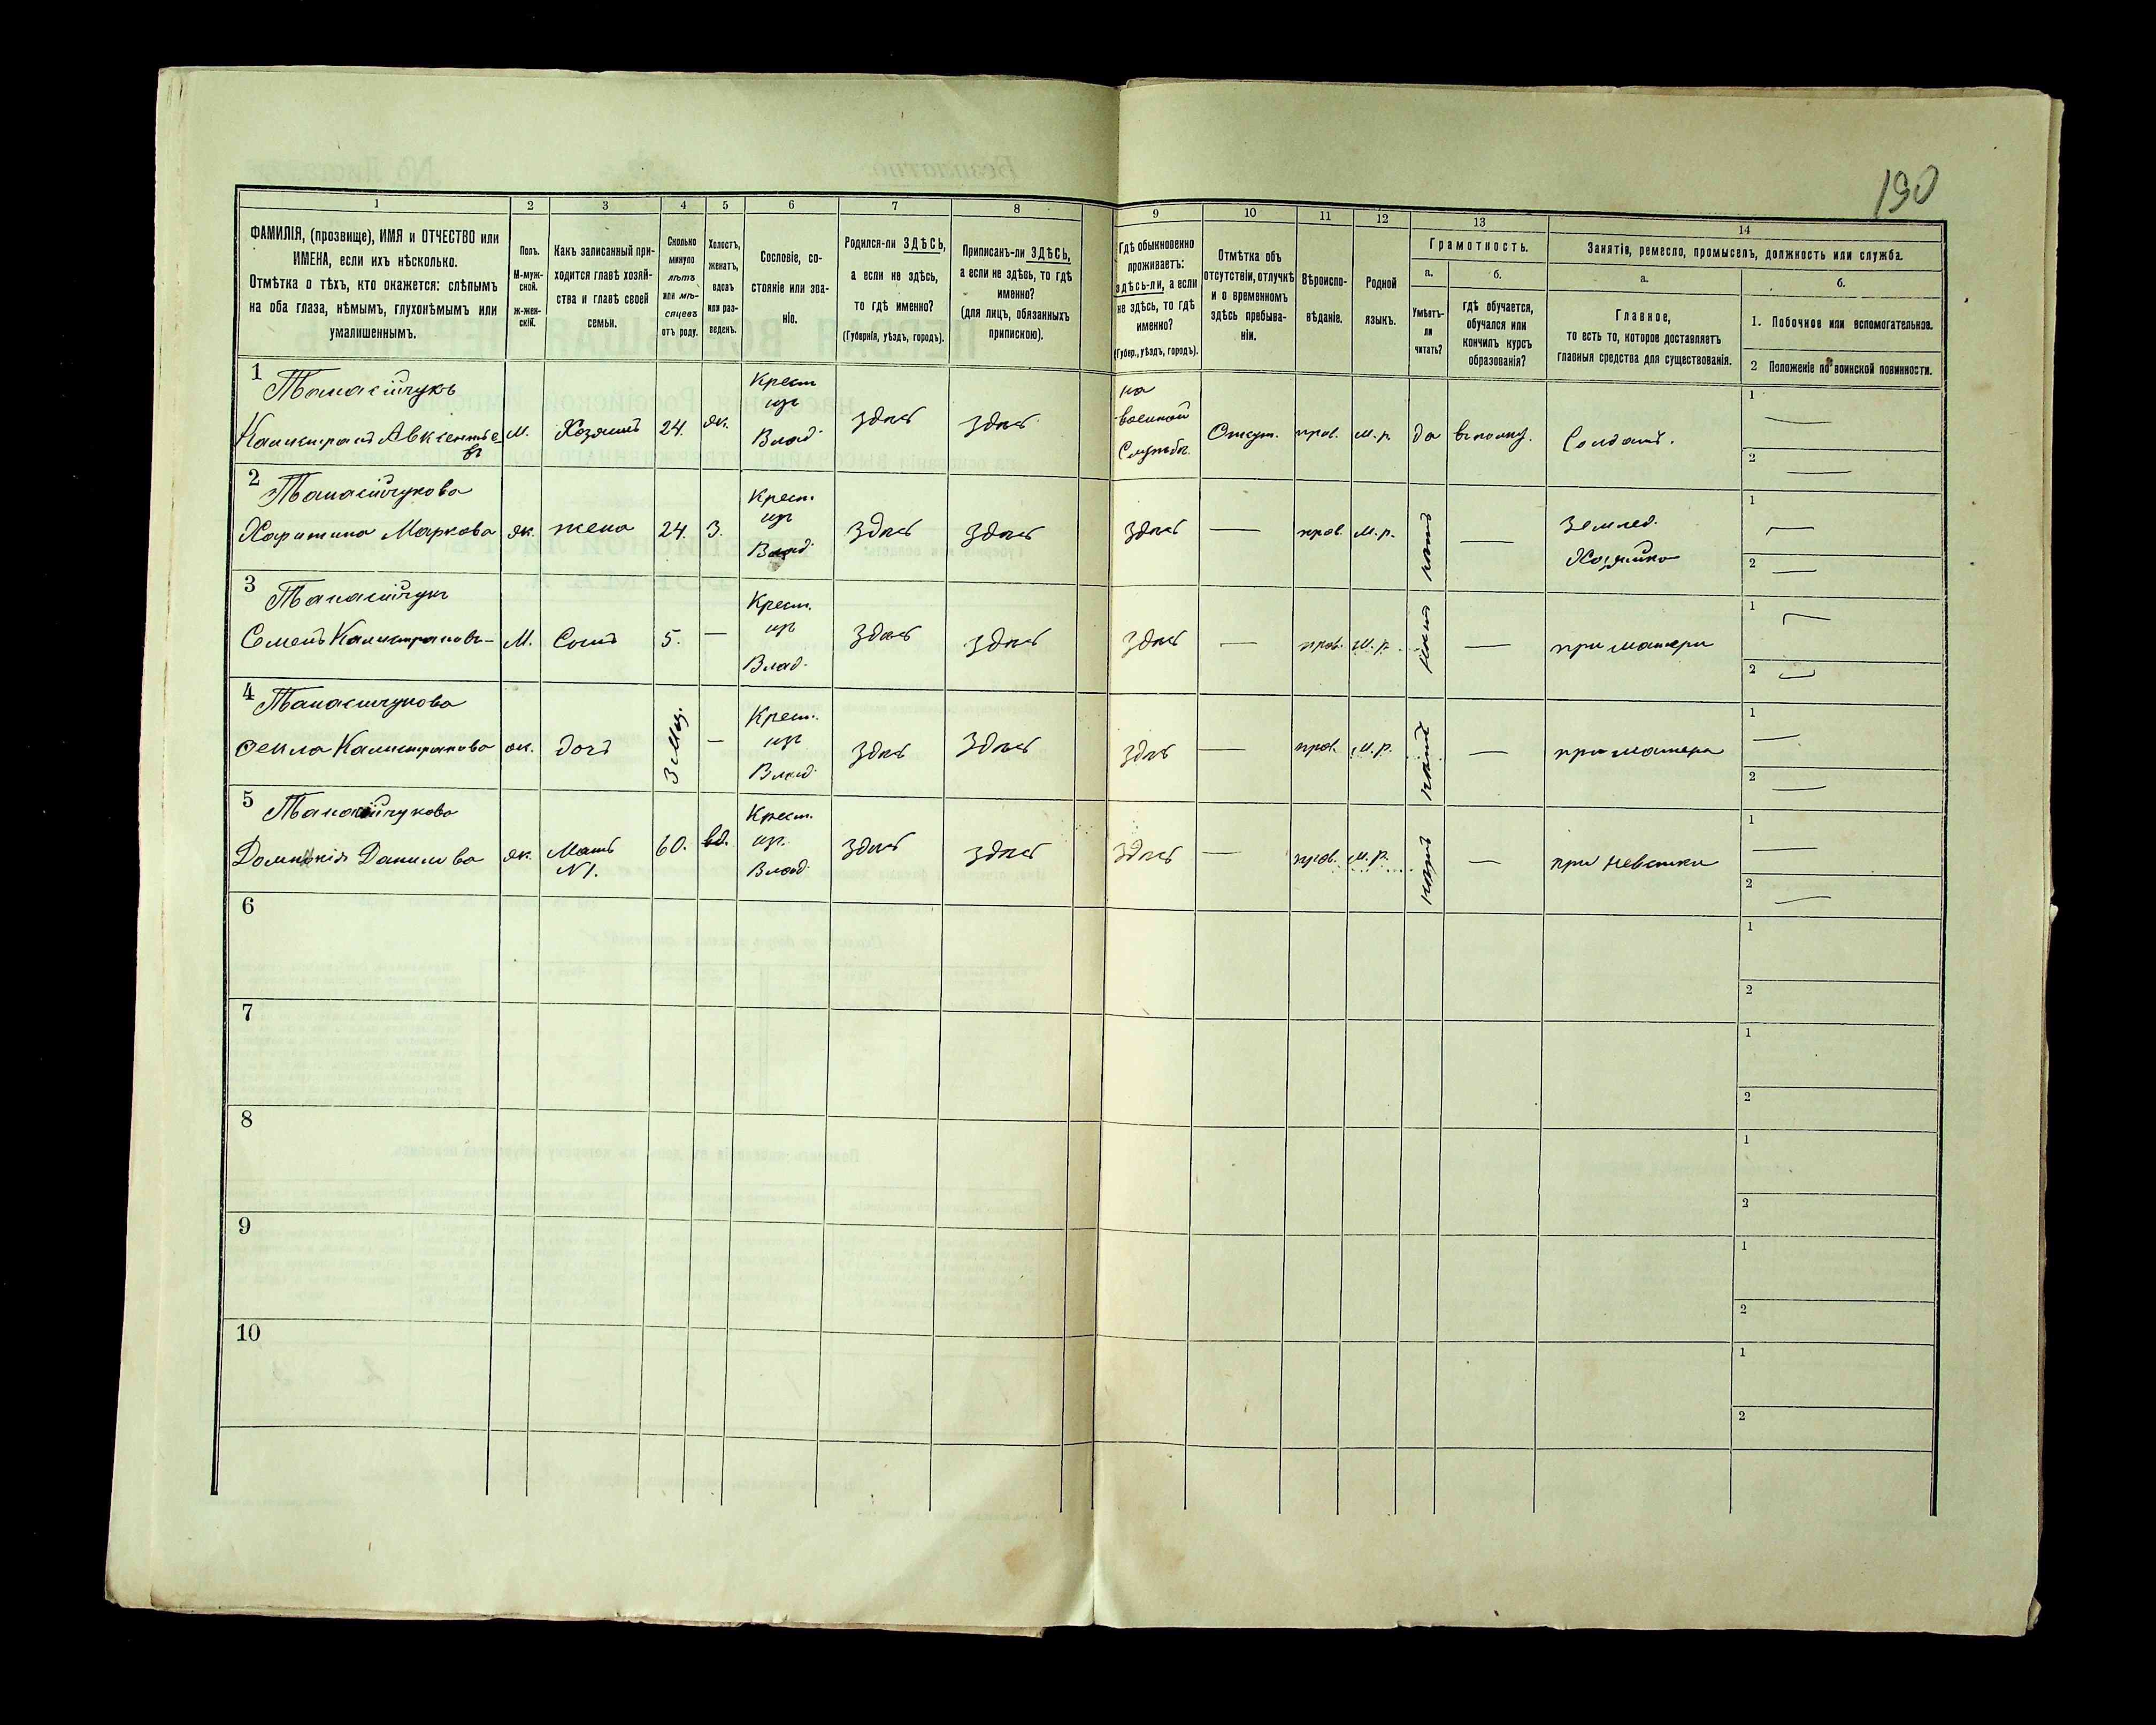 190
1 2 3 4 5 6 7 8 9 10 11 12 13 14
ФАМИЛІЯ, (прозвище), ИМЯ и ОТЧЕСТВО или
ИМЕНА, если ихъ нѣсколько.
Отмѣтка о тѣхъ, кто окажется: слѣпымъ
на оба глаза, нѣмымъ, глухонѣмымъ или
умалишеннымъ.
Полъ.
М-муж-
ской.
ж-жен-
скій.
Какъ записанный при-
ходится главѣ хозяй-
ства и главѣ своей
семьи.
Сколько
минуло
лѣтъ
или мѣ-
сяцевъ
отъ роду.
Холостъ,
женатъ,
вдовъ
или раз-
веденъ.
Сословіе, со-
стояніе или зва-
ніе.
Родился-ли ЗДѢСЬ,
а если не здѣсь,
то гдѣ именно?
(Губернія, уѣздъ, городъ).
Приписанъ-ли ЗДѢСЬ,
а если не здѣсь, то гдѣ
именно?
(для лицъ, обязанныхъ
припискою).
Гдѣ обыкновенно
проживаетъ:
здѣсь-ли, а если
не здѣсь, то гдѣ
именно?
(Губер., уѣздъ, городъ).
Отмѣтка объ
отсутствіи, отлучкѣ
и о временномъ
здѣсь пребыва-
ніи.
Вѣроиспо-
вѣданіе.
Родной
языкъ.
Грамотность.
а.
Умѣетъ-
ли
читать?
б.
гдѣ обучается,
обучался или
кончилъ курсъ
образованія?
Занятія, ремесло, промыселъ, должность или служба.
а.
Главное,
то есть то, которое доставляетъ
главныя средства для существованія.
б.
1. Побочное или вспомогательное.
2 Положеніе по воинской повинности.
1 Танасійчукъ
Калистратъ Авксентіе-
въ
М. Хозяинъ 24. ж.
Крест
из
Влад
здѣсь здѣсь
на
военной
Службѣ
Отсут. прав. м. р. да Солдатъ.
1 —
2 —
2 Танасійчукова
Харитина Маркова ж. жена 24 З.
Крест.
из
Влад
здѣсь здѣсь здѣсь — прав. М. р. нѣтъ —
Землед.
Хозяйка
1 —
2 —
3 Танасійчукъ
Семенъ Калистратовъ М. Сынъ 5. —
Крест.
из
Влад.
здѣсь здѣсь здѣсь — прав. М. р. нѣтъ — при матери
1 —
2 —
4 Танасийчукова
Ѳекла Калистратова ж. дочь 3 Мц. —
Крест.
из
Влад.
здѣсь здѣсь здѣсь — прав. М. р. нѣтъ — при матери
1 —
2 —
5 Танасійчукова
Домникія Данилова ж. Мать
№1. 60. вд.
Крест.
из.
Влад
здѣсь здѣсь здѣсь — прав. М. р. нѣтъ — при невѣстки
1 —
2 —
6
1
2
7
1
2
8
1
2
9
1
2
10
1
2